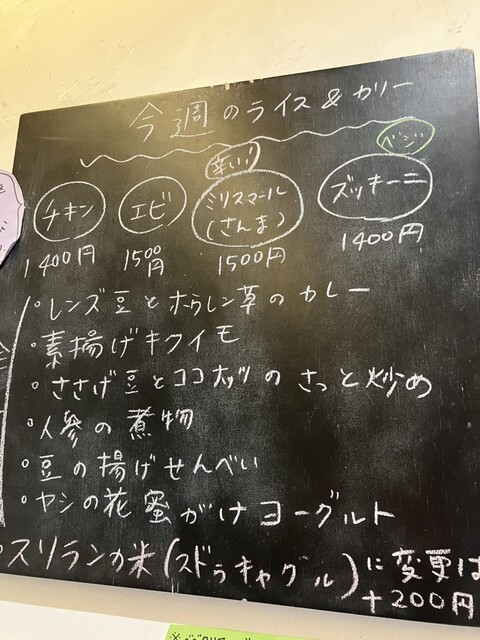 今週のライス&カリー
ベジ
辛い!
チキン
エビ
ミリスマール
(さんま)
ズッキーニ
1400円
1500
円
1500円
1400円
・レンズ豆とホウレン草のカレー
・素揚げキクイモ
・ささげ豆とココナッツのさっと炒め
・人参の煮物
・豆の揚げせんべい
・ヤシの花蜜がけヨーグルト
・スリランカ米(スドゥラキャクル)に変更は
+200円